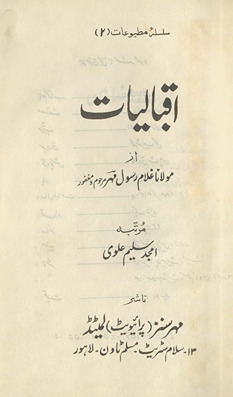 سلسلۂ مطبوعات (۲)
اقبالیات
از
مولانا غلام رسول مہر مرحوم و مغفور
مرتبہ
امجد سلیم علوی
ناشر
مہر سنز (پرائیویٹ) لمیٹڈ
۱۳- سلام سٹریٹ - مسلم ٹاون - لاہور